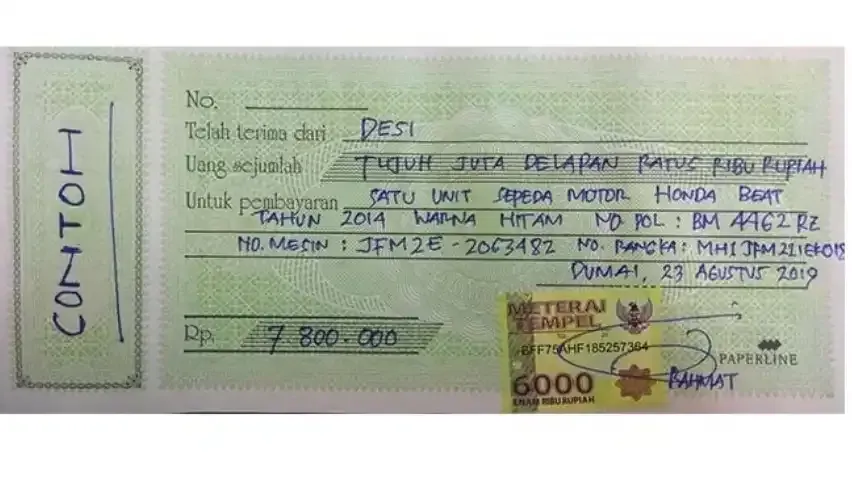 CONTOH
No.
Telah terima dari DESI
Uang sejumlah TUJUH JUTA DELAPAN RATUS RIBU RUPIAH
Untuk pembayaran SATU UNIT SEPEDA MOTOR HONDA BEAT
TAHUN 2014 WARNA HITAM NO POL : BM 4462 RZ
NO. MESIN : JFM2E - 2063482 NO. RANGKA :
DUMAI, 23 AGUSTUS 2019
METERAI
TEMPEL
BFF75AHF185257364
6000
ENAM RIBU RUPIAH
Rp. 7.800.000
PAPERLINE
RAHMAT